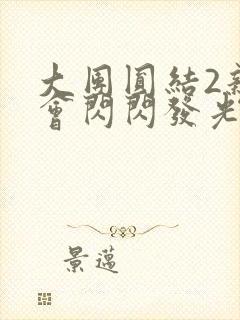 大團圓結2新
會閃閃發光
景邁